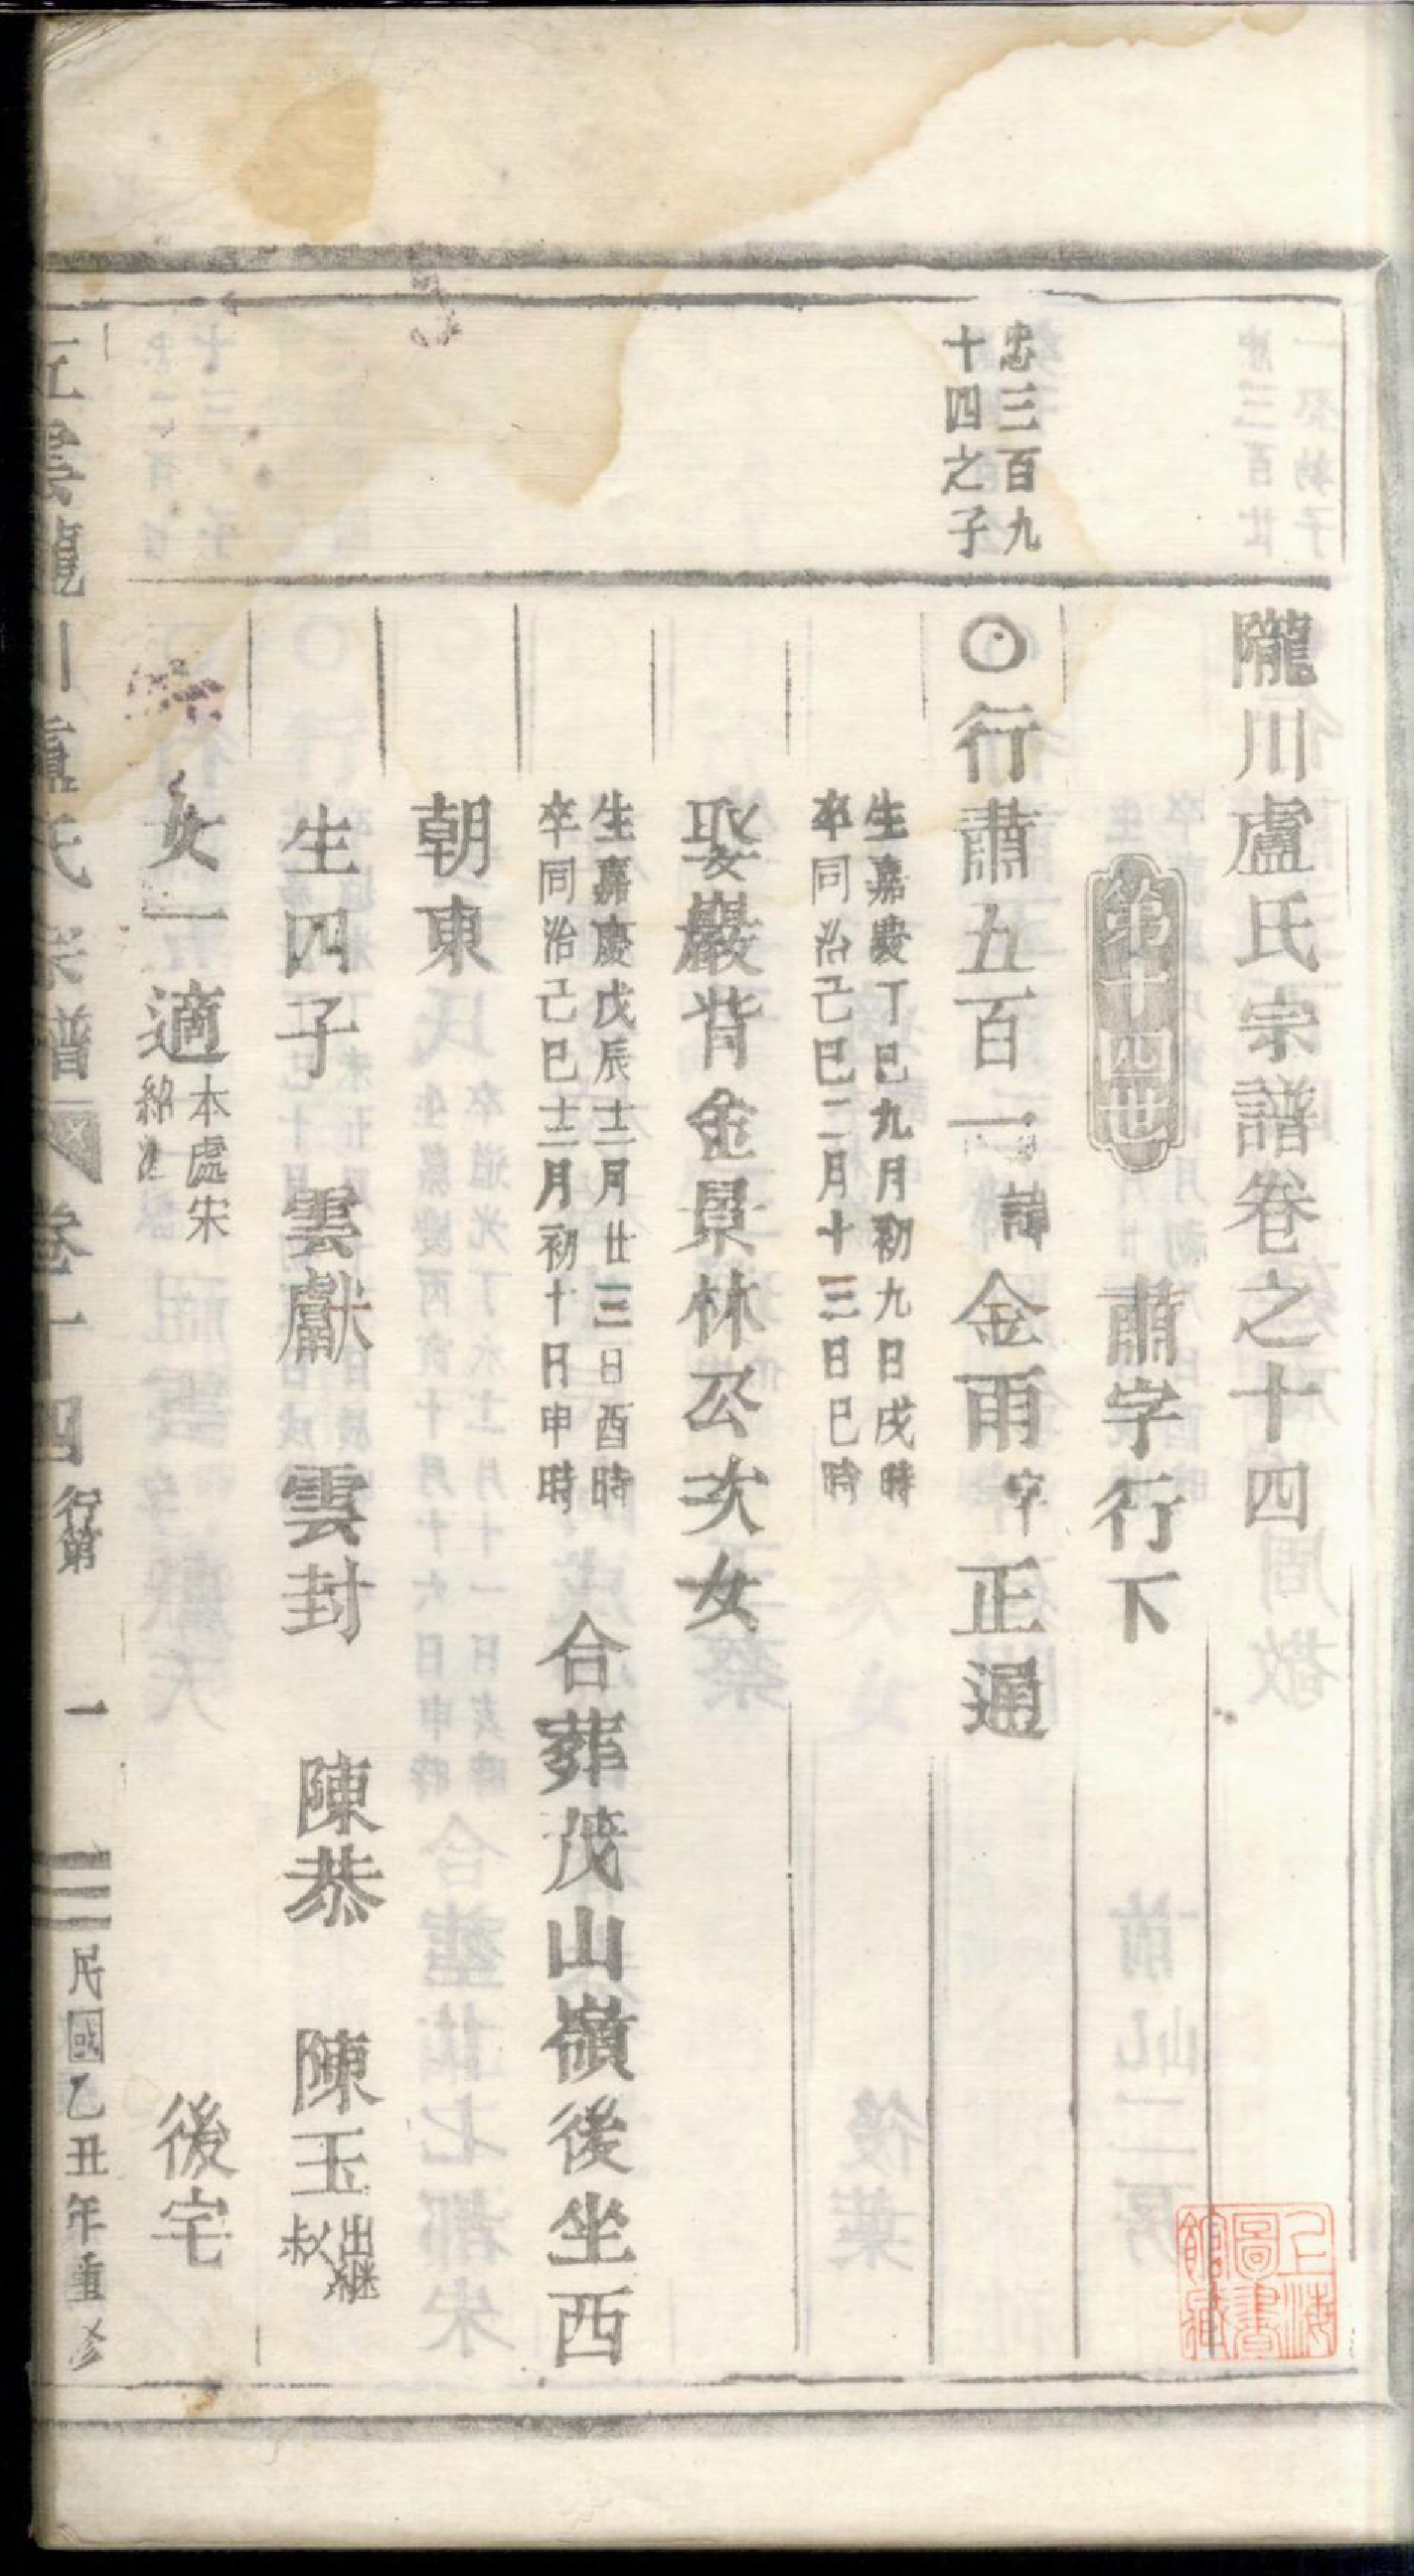 隴川盧氏宗譜卷之十四
第十四世 肅字行下
忠三百九
十四之子
行肅五百一 諱金雨字正通
生嘉慶丁巳九月初九日戌時
卒同治己巳二月十三日巳時
娶巖背金景林公次女
生嘉慶戊辰十二月廿三日酉時
卒同治己巳十二月初十日申時
合葬茂山嶺後坐西
朝東
生四子 雲獻 雲封 陳恭 陳玉出繼叔
女一適本處宋 後宅
五雲隴川盧氏宗譜 卷十四 行第 一 民國乙丑年重修
上海圖書館藏